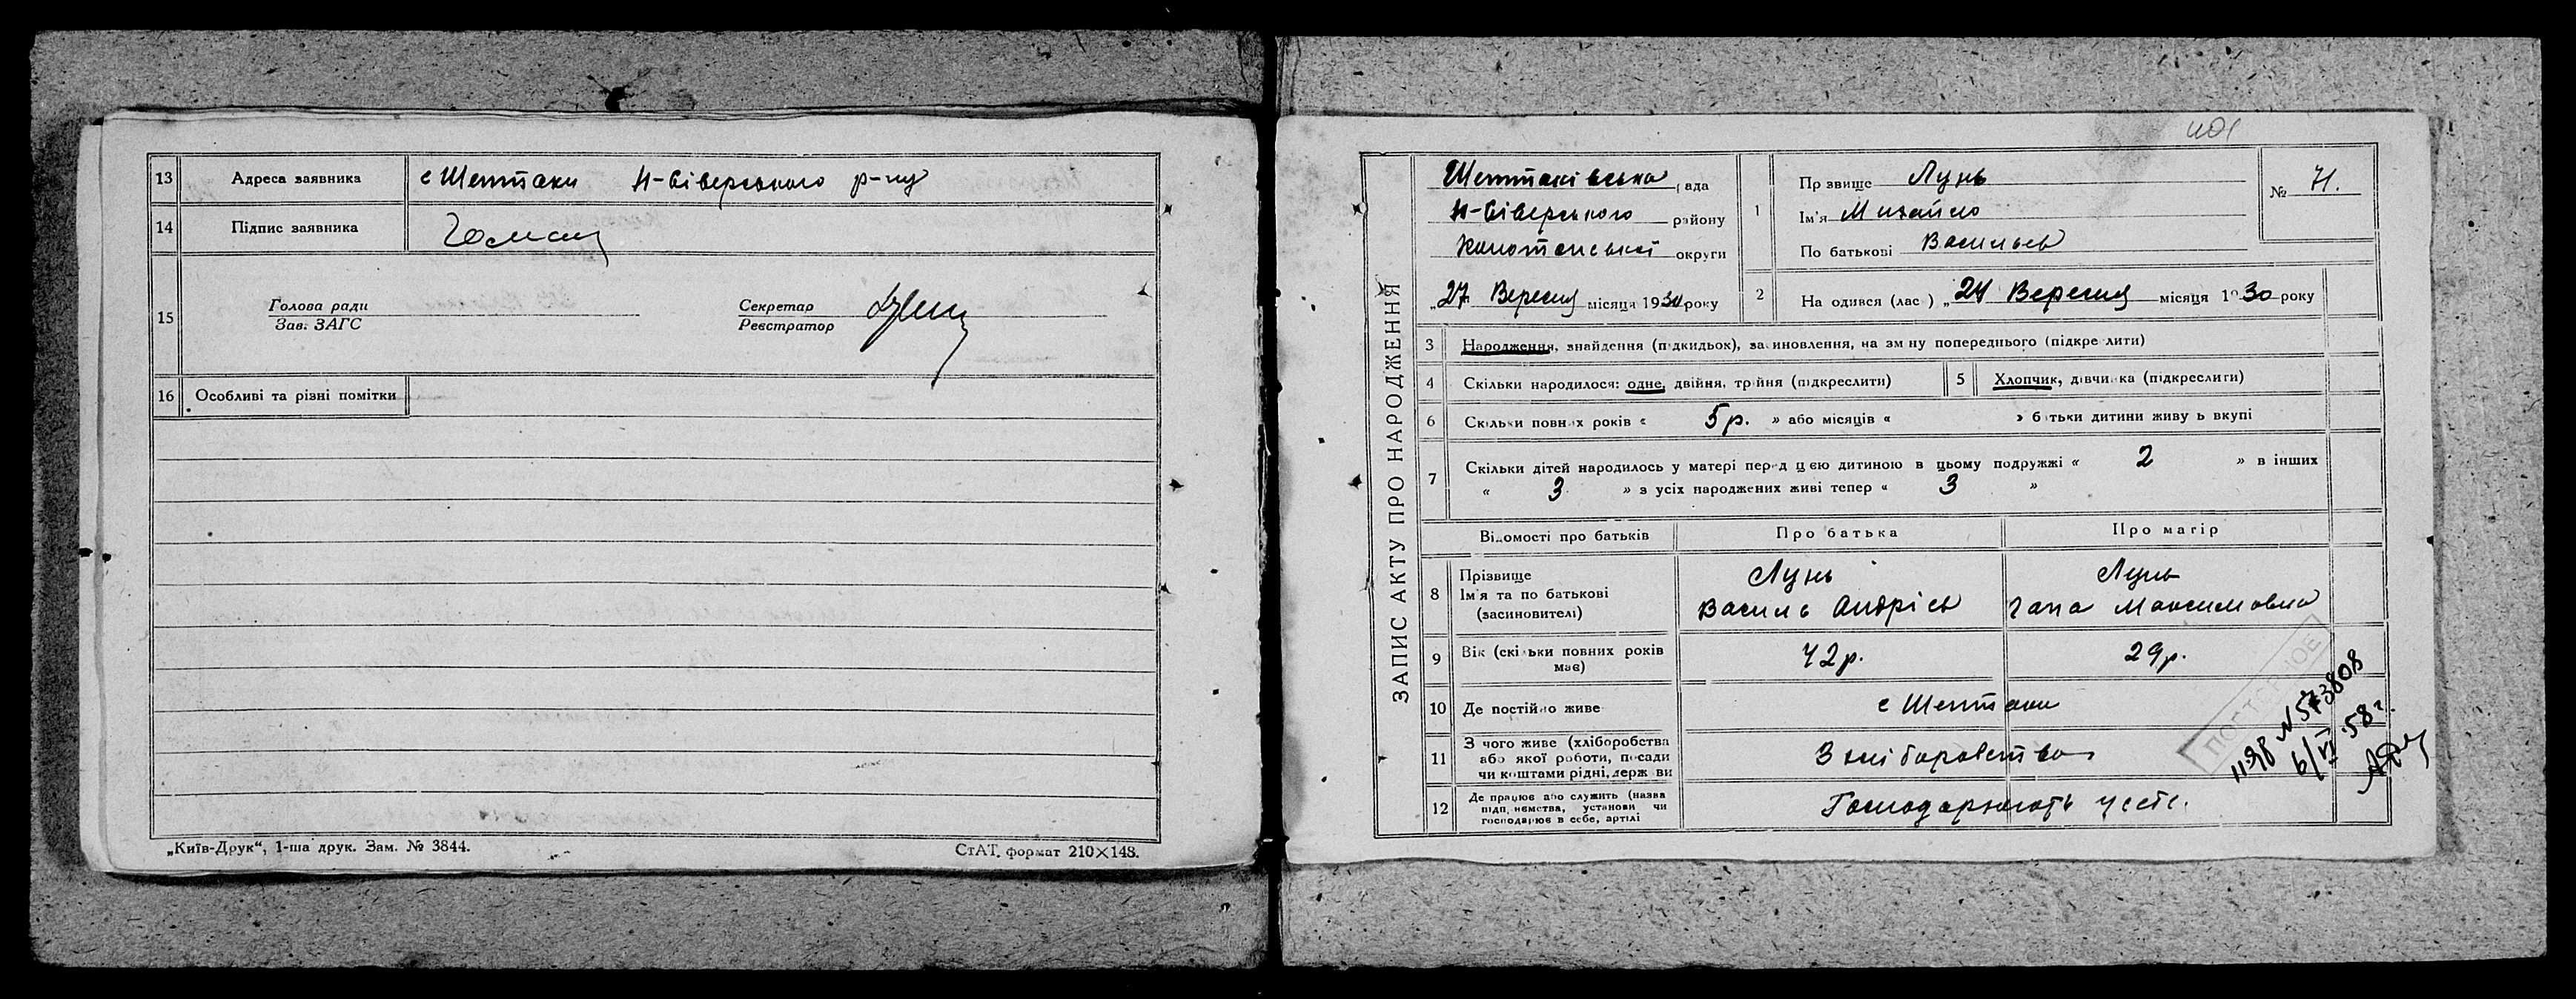 13 Адреса заявника с Шептаки Н-Сіверського р-ну
14 Підпис заявника
15 Голова ради
Зав. ЗАГС
Секретар
Реєстратор
16 Особливі та різні помітки
„Київ-Друк“, 1-ша друк. Зам. № 3844.
СтАТ. формат 210×148.
ЗАПИС АКТУ ПРО НАРОДЖЕННЯ
Шептаківська рада
Н-Сіверського району
Конотопської округи
„27 Вересня місяця 1930 року
1 Прізвище Лунь
Ім'я Михайло
По батькові Васильев
№ 71.
2 На одився (лас ) „24 Вересня місяця 1930 року
3 Народження, знайдення (підкидьок), засиновлення, на зміну попереднього (підкреслити)
4 Скільки народилося: одне, двійня, трійня (підкреслити)
5 Хлопчик, дівчинка (підкреслити)
6 Скільки повних років « 5 р. » або місяців « » батьки дитини живуть вкупі
7 Скільки дітей народилось у матері перед цією дитиною в цьому подружжі « 2 » в інших
« 3 » з усіх народжених живі тепер « 3 »
Відомості про батьків Про батька Про матір
8 Прізвище
Ім'я та по батькові
(засиновителі)
Лунь
Василь Андріев
Лунь
Гапа Максимовна
9 Вік (скільки повних років
має)
42 р.
29 р.
10 Де постійно живе с Шептаки
11 З чого живе (хліборобства
або якої роботи, посади
чи коштами рідні, держави
З хліборобства
12 Де працює або служить (назва
підприємства, установи чи
господарює в себе, артілі
Господарюють у себе.
ПОВТОРНОЕ
№573808
6/VI 58г.